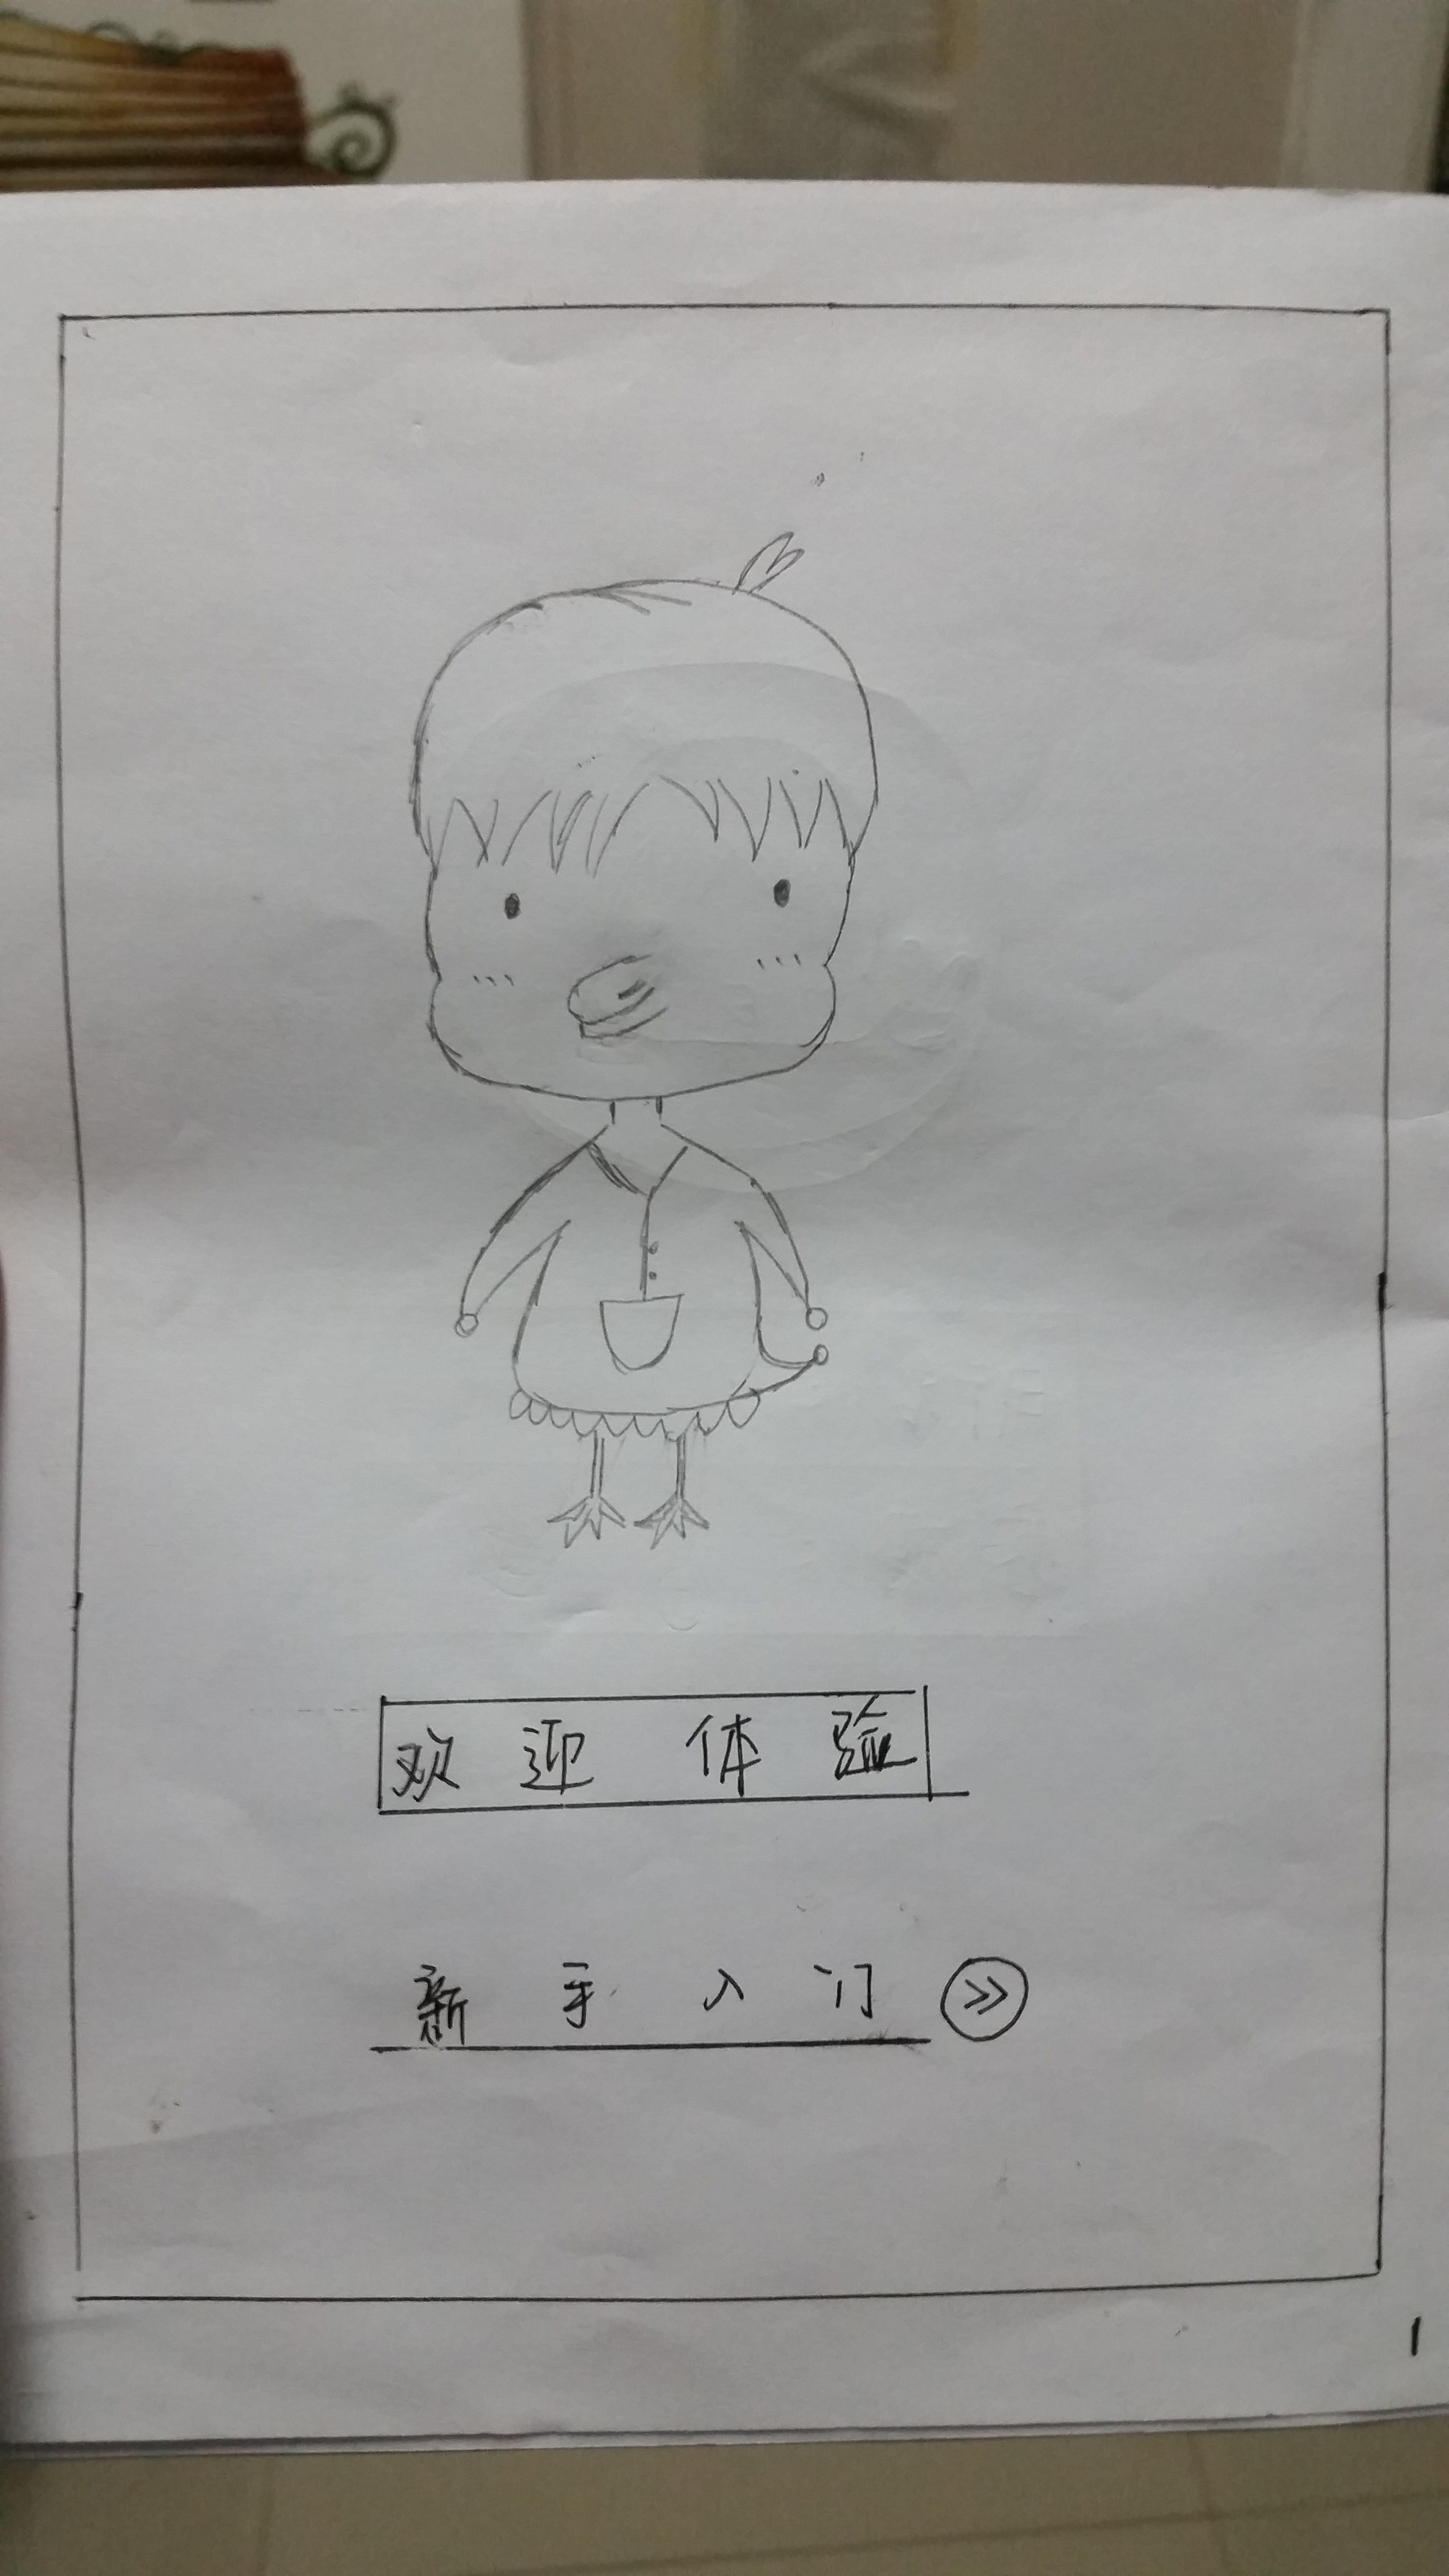 欢迎体验
新手入门 »
1